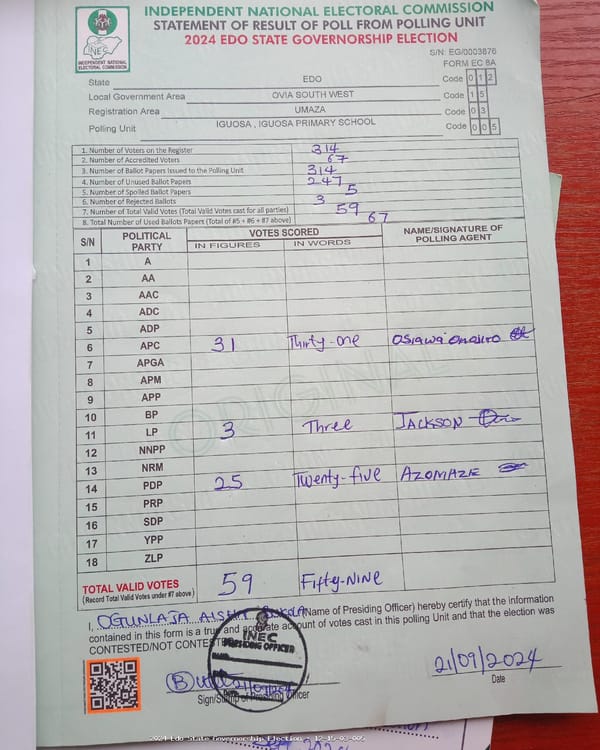 INDEPENDENT NATIONAL ELECTORAL COMMISSION
STATEMENT OF RESULT OF POLL FROM POLLING UNIT
2024 EDO STATE GOVERNORSHIP ELECTION
INEC
INDEPENDENT NATIONAL ELECTORAL COMMISSION
S/N: EG/0003876
FORM EC 8A
State EDO Code 0 1 2
Local Government Area OVIA SOUTH WEST Code 1 5
Registration Area UMAZA Code 0 3
Polling Unit IGUOSA , IGUOSA PRIMARY SCHOOL Code 0 0 5
1. Number of Voters on the Register 314
2. Number of Accredited Voters 67
3. Number of Ballot Papers Issued to the Polling Unit 314
4. Number of Unused Ballot Papers 247
5. Number of Spoiled Ballot Papers 5
6. Number of Rejected Ballots 3
7. Number of Total Valid Votes (Total Valid Votes cast for all parties) 59
8. Total Number of Used Ballots Papers (Total of #5 + #6 + #7 above) 67
S/N POLITICAL PARTY VOTES SCORED NAME/SIGNATURE OF POLLING AGENT
IN FIGURES IN WORDS
1 A
2 AA
3 AAC
4 ADC
5 ADP
6 APC 31 Thirty-one
7 APGA
8 APM
9 APP
10 BP
11 LP 3 Three JACKSON
12 NNPP
13 NRM
14 PDP 25 Twenty-five AZOMAZIE
15 PRP
16 SDP
17 YPP
18 ZLP
ORIGINAL
TOTAL VALID VOTES 59 Fifty-Nine
(Record Total Valid Votes under #7 above)
I, OGUNLAJA AISHA (Name of Presiding Officer) hereby certify that the information
contained in this form is a true and accurate account of votes cast in this polling Unit and that the election was
CONTESTED/NOT CONTESTED
INEC
PRESIDING OFFICER
21/09/2024
Sign/Stamp of Presiding Officer Date
2024 Edo State Governorship Election - 12-15-03-005